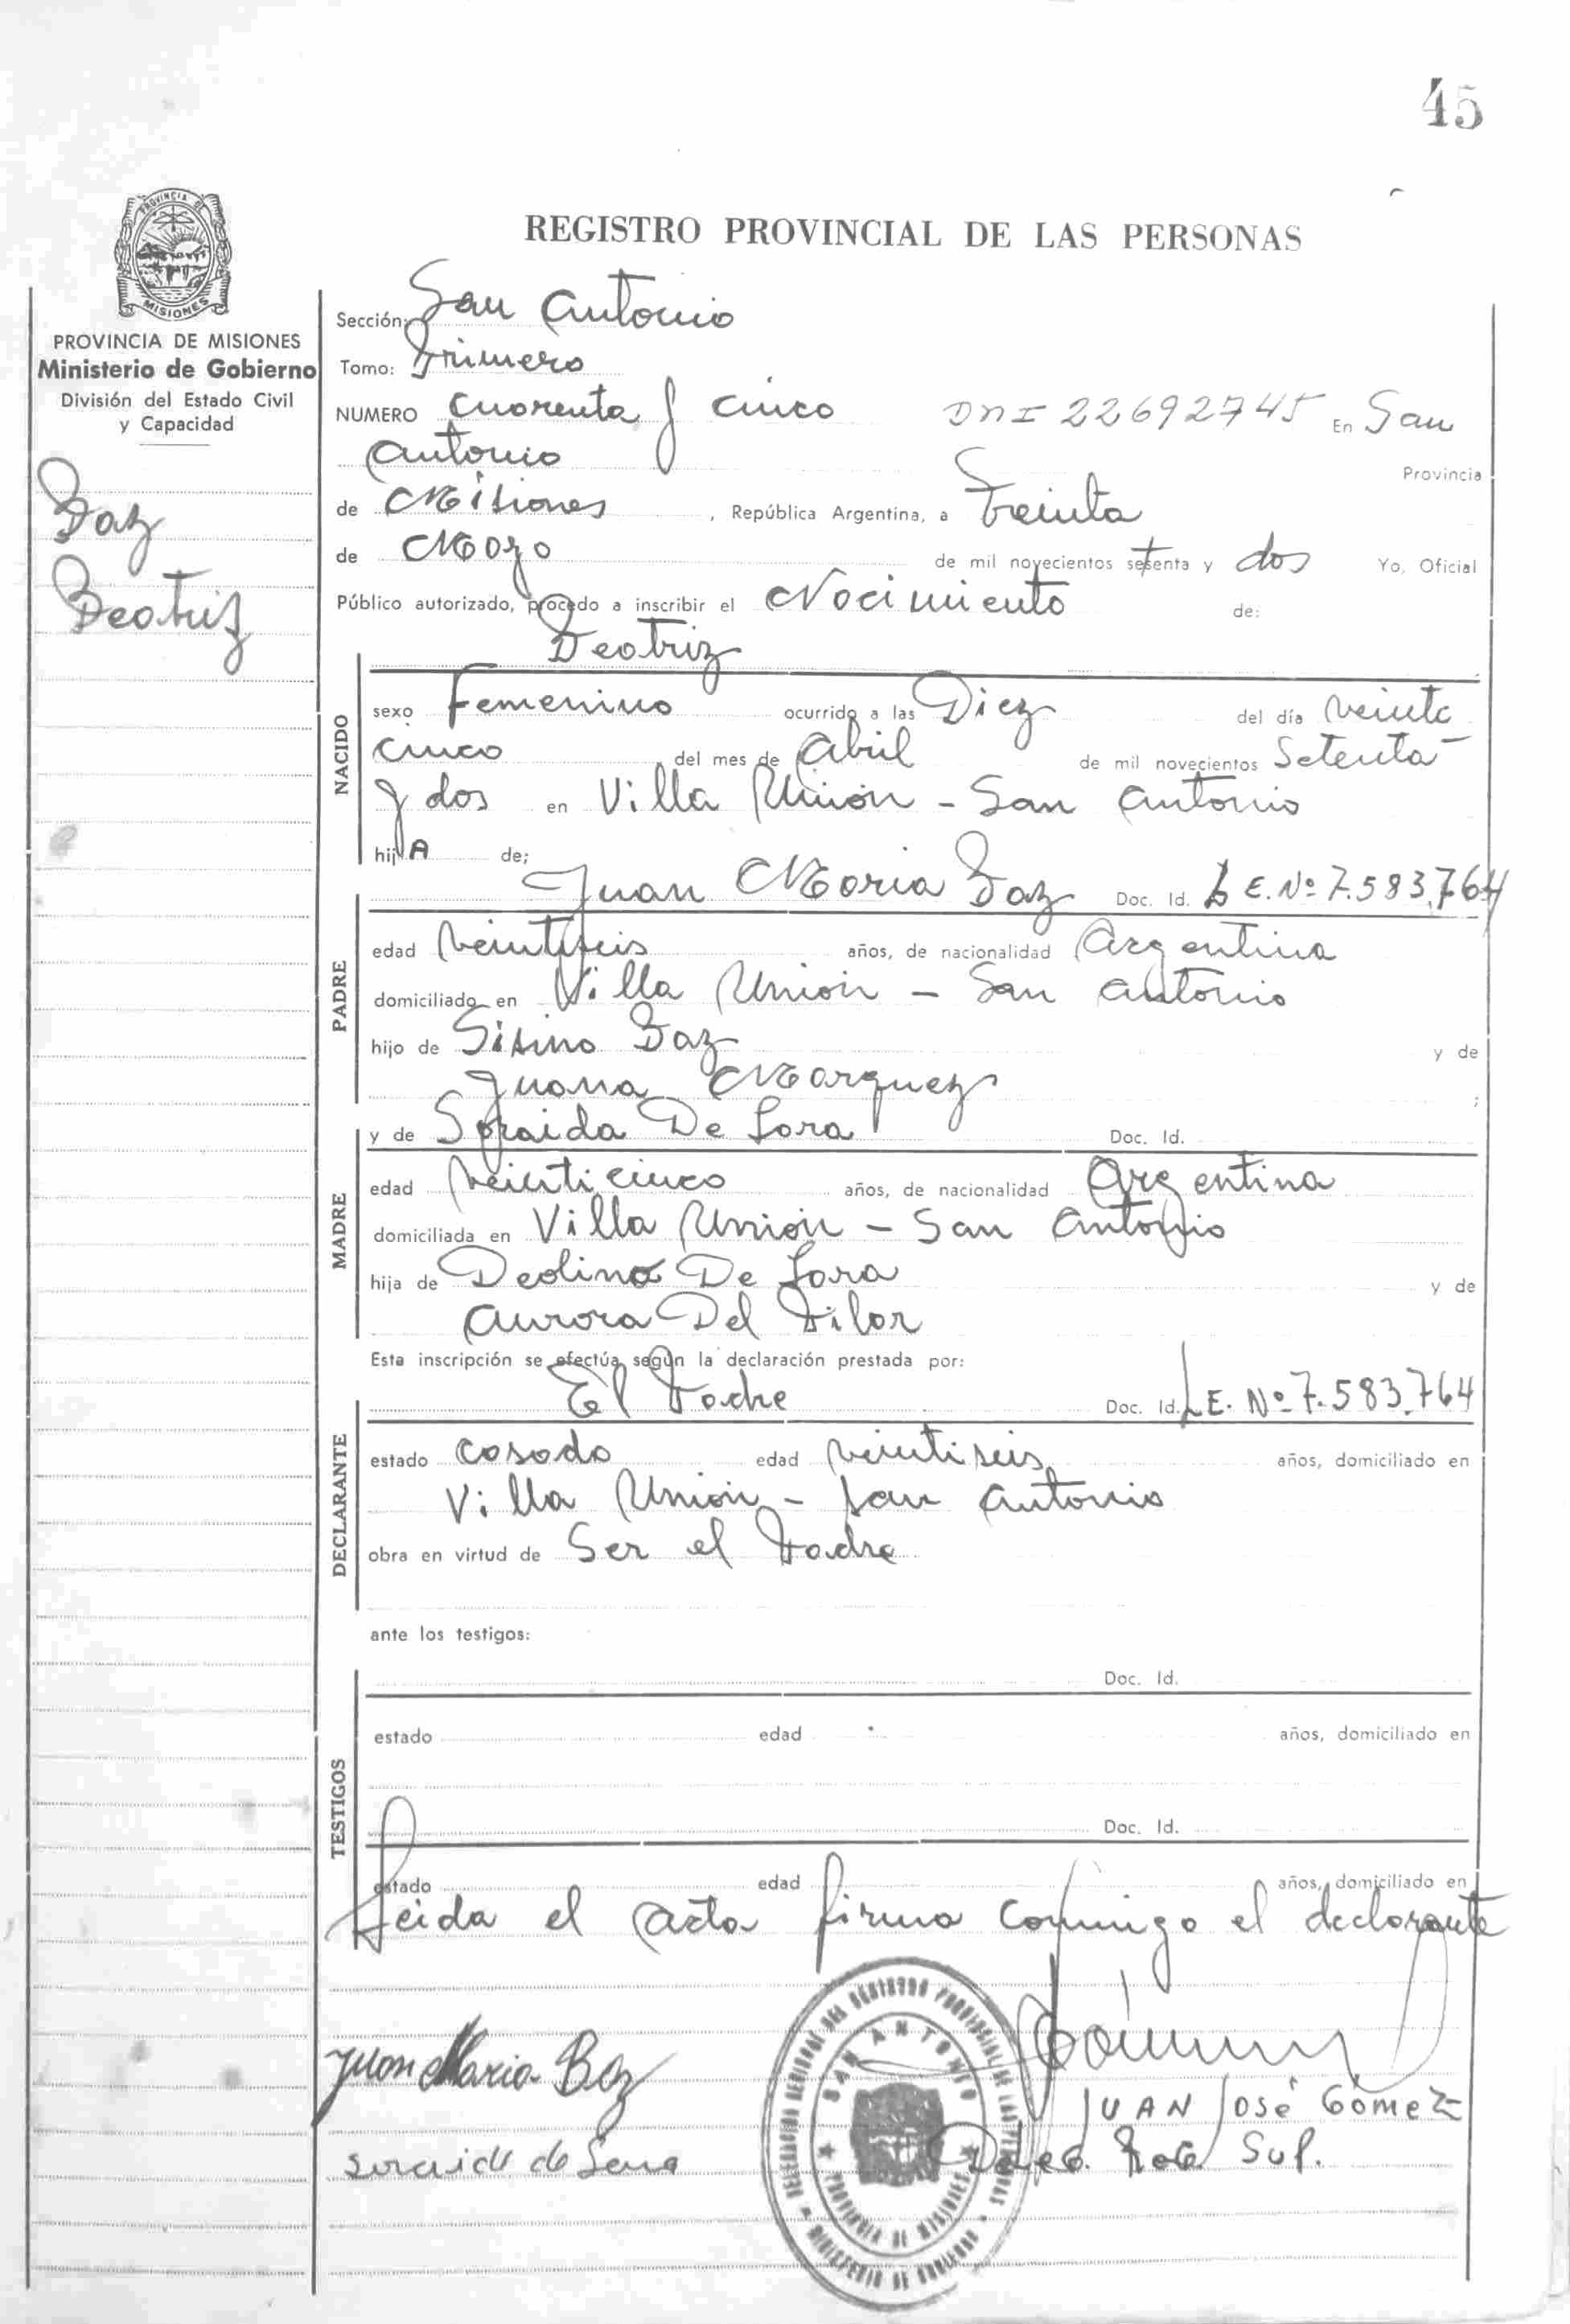 45
REGISTRO PROVINCIAL DE LAS PERSONAS
PROVINCIA DE
MISIONES
PROVINCIA DE MISIONES
Ministerio de Gobierno
División del Estado Civil
y Capacidad
Baz
Beatriz
Sección: San Antonio
Tomo: Primero
NUMERO Cuarenta y cinco DNI 22692745 En San
Antonio Provincia
de Misiones, República Argentina, a Treinta
de Mayo de mil novecientos setenta y dos Yo, Oficial
Público autorizado, procedo a inscribir el Nacimiento de:
Beatriz
NACIDO
sexo Femenino ocurrido a las Diez del día veinte
cinco del mes de Abril de mil novecientos Setenta
y dos en Villa Unión - San Antonio
hijA de;
Juan Maria Baz Doc. Id. L E. Nº 7.583.764
PADRE
edad veintiseis años, de nacionalidad Argentina
domiciliado en Villa Unión - San Antonio
hijo de Sisino Baz y de
Juana Marquez ;
y de Soraida De Lara Doc. Id.
MADRE
edad veinticinco años, de nacionalidad Argentina
domiciliada en Villa Unión - San Antonio
hija de Deolino De Lara y de
Aurora Del Pilar
Esta inscripción se efectúa según la declaración prestada por:
El Padre Doc. Id. L E. Nº 7.583.764
DECLARANTE
estado casado edad veintiseis años, domiciliado en
Villa Unión - San Antonio
obra en virtud de Ser el Padre
ante los testigos:
Doc. Id.
TESTIGOS
estado edad años, domiciliado en
Doc. Id.
estado edad años, domiciliado en
Leida el acta firma conmigo el declarante
Juan Maria Baz
JUAN JOSé Gómez
Sup.
DELEGACION REGIONAL DEL REGISTRO PROVINCIAL DE LAS PERSONAS
SAN ANTONIO
PROVINCIA DE MISIONES
MINISTERIO DE GOBIERNO